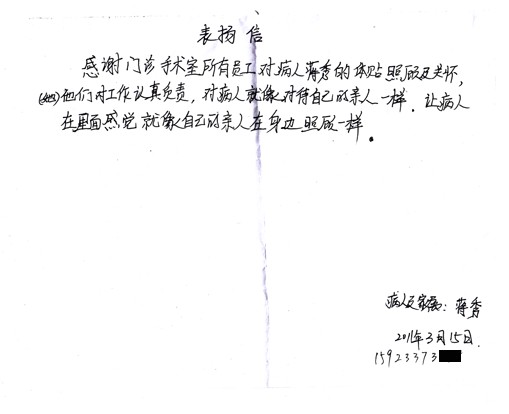 表扬信
感谢门诊手术室所有员工对病人蒋秀的体贴照顾及关怀,
(她)他们对工作认真负责,对病人就像对待自己的亲人一样.让病人
在里面感觉就像自己的亲人在身边照顾一样.
病人及家属:蒋秀
2011年3月15日.
15923373